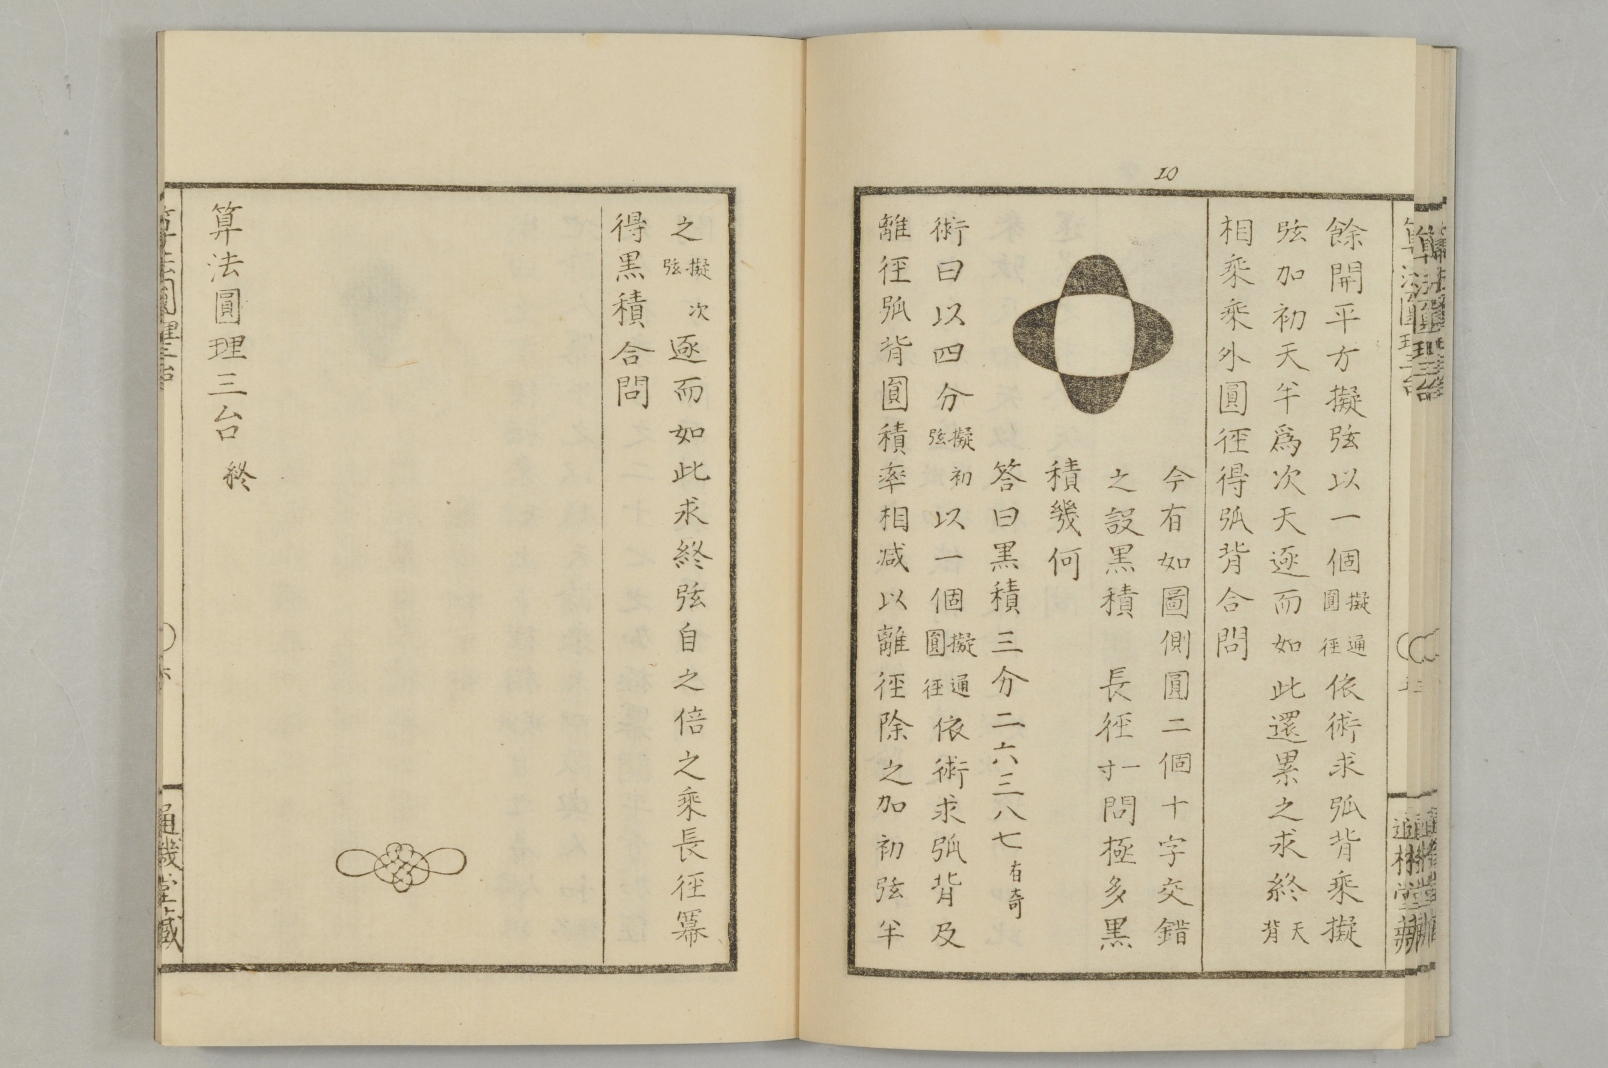 10
餘開平方擬弦以一個擬圓通徑依術求弧背乘擬
弦加初天半爲次天逐而如此還累之求終天背
相乘乘外圓徑得弧背合問
今有如圖側圓二個十字交錯
之設黒積 長徑一寸問極多黒
積幾何
答曰黒積三分二六三八七有奇
術曰以四分擬初弦以一個擬圓通徑依術求弧背及
離徑弧背圓積率相减以離徑除之加初弦半
之擬次弦逐而如此求終弦自之倍之乘長徑冪
得黒積合問
算法圓理三台終